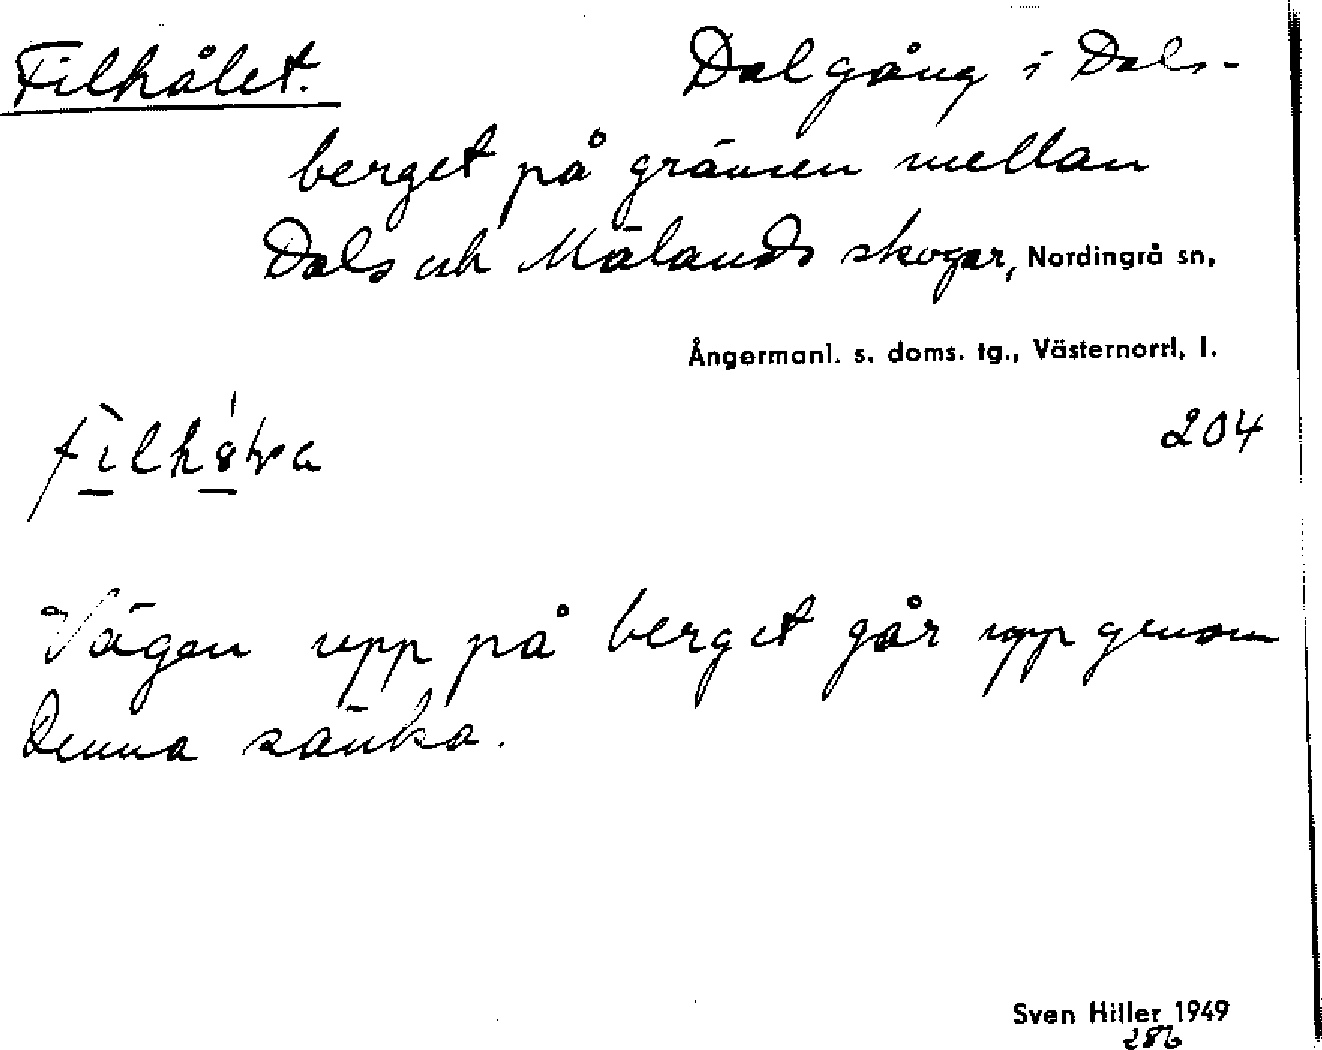 Filhålet. Dalgång i Dals-
berget på gränsen mellan
Dals och Mälands skogar, Nordingrå sn,
Ångermanl. s. doms. tg., Västernorrl, l.
204
Vägen upp på berget går upp genom
denna sänka.
Sven Hiller 1949
286